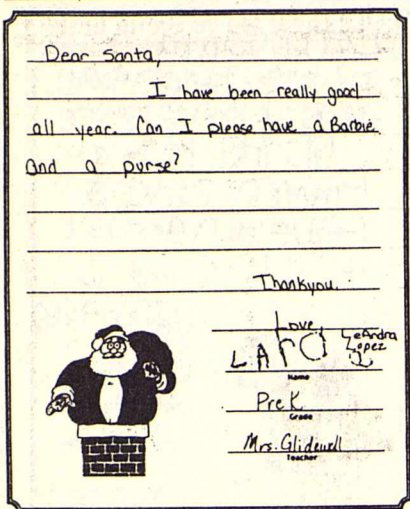 Dear Santa,
I have been really good
all year. Can I please have a Barbie
and a purse?
Thankyou.
Love,
LeAndra
Lopez
Name
PreK
Grade
Mrs. Glidewell
Teacher